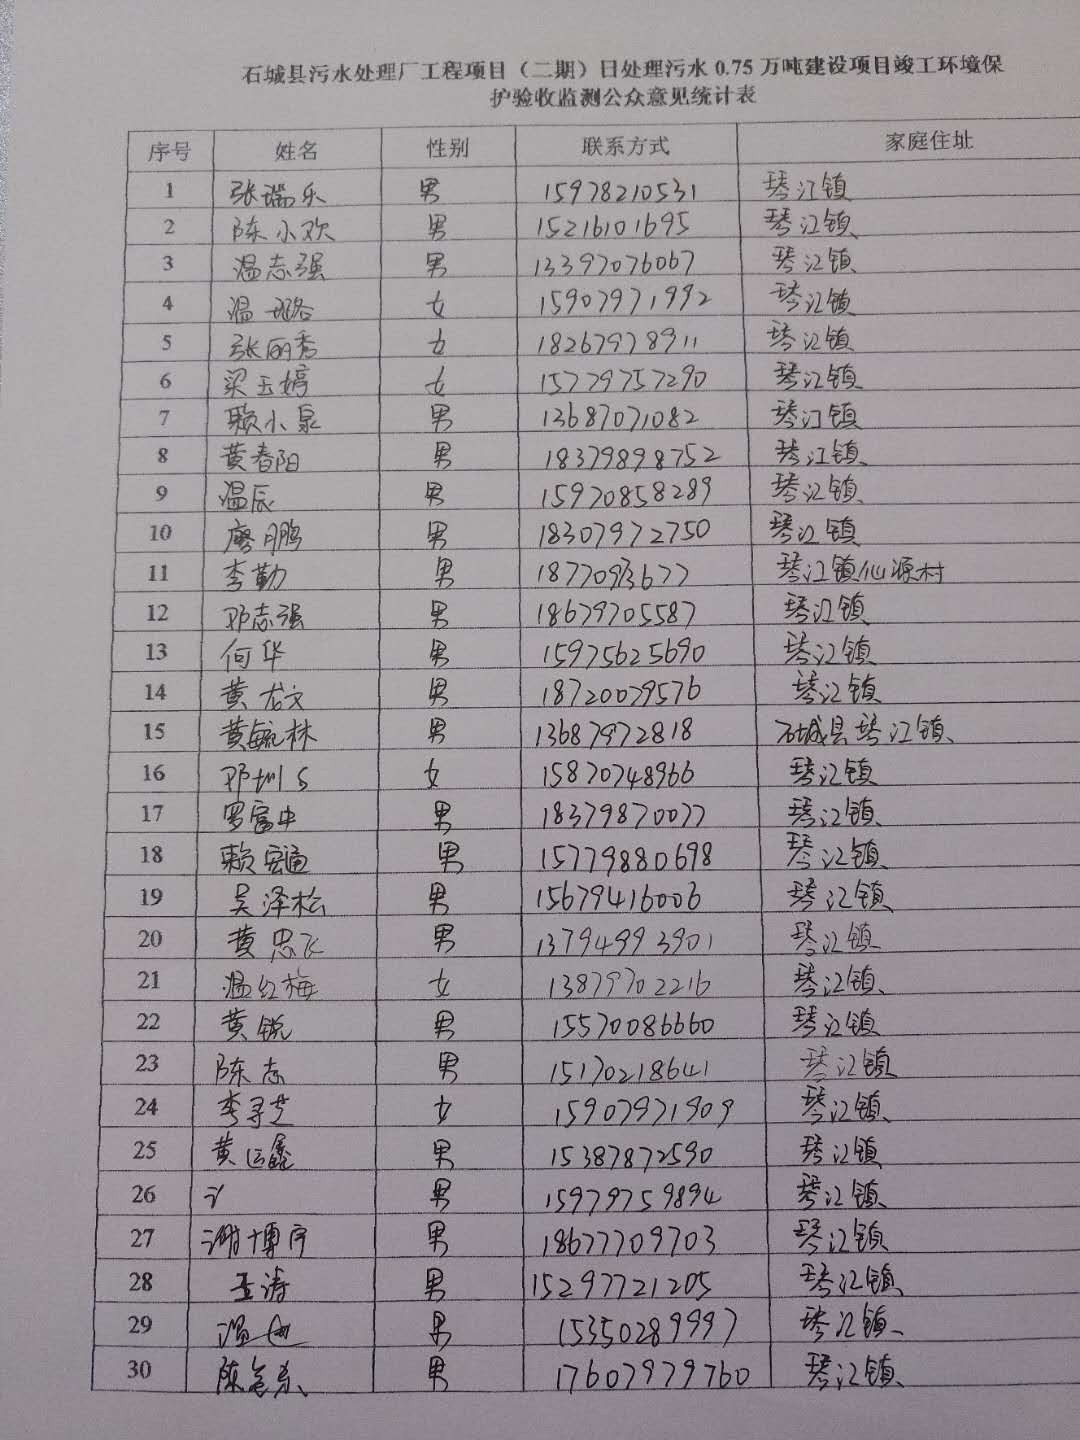 石城县污水处理厂工程项目（二期）日处理污水 0.75 万吨建设项目竣工环境保
护验收监测公众意见统计表
序号 姓名 性别 联系方式 家庭住址
1 张瑞乐 男 15978210531 琴江镇
2 陈小欢 男 15216101695 琴江镇
3 温志强 男 13397076067 琴江镇
4 温璐 女 15907971992 琴江镇
5 张丽香 女 18267978911 琴江镇
6 梁玉婷 女 15779757290 琴江镇
7 赖小泉 男 13687071082 琴江镇
8 黄春阳 男 18379898752 琴江镇
9 温辰 男 15970858289 琴江镇
10 廖鹏 男 18307972750 琴江镇
11 李勤 男 18770913677 琴江镇仙源村
12 邓志强 男 18679705587 琴江镇
13 何华 男 15975625690 琴江镇
14 黄龙文 男 18720079576 琴江镇
15 黄毓林 男 13687972818 石城县琴江镇
16 女 15870748966 琴江镇
17 罗富中 男 18379870077 琴江镇
18 赖宏通 男 15779880698 琴江镇
19 吴泽松 男 15679416006 琴江镇
20 黄忠飞 男 13794993901 琴江镇
21 温红梅 女 13879702216 琴江镇
22 黄锐 男 15570086660 琴江镇
23 陈志 男 15170218641 琴江镇
24 李寻芝 女 15907971909 琴江镇
25 黄运鑫 男 15387872590 琴江镇
26 男 15979759894 琴江镇
27 谢博宇 男 18677709703 琴江镇
28 王涛 男 15297721205 琴江镇
29 温 男 15350289997 琴江镇
30 陈 男 17607979760 琴江镇